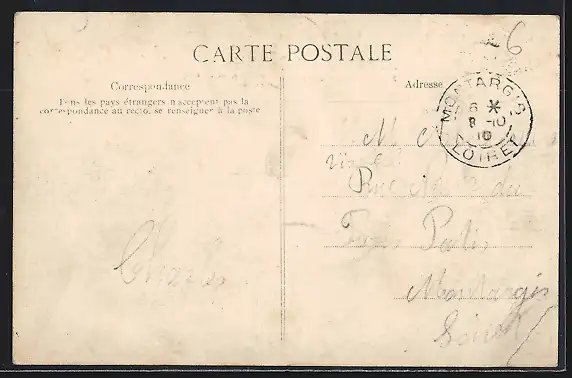 6
CARTE POSTALE
Correspondance
Tous les pays étrangers n'acceptent pas la
correspondance au recto, se renseigner à la poste
Adresse
MONTARGIS
6 *
8 -10
10
LOIRET
M.
Rue du
Montargis
Loiret
Charles